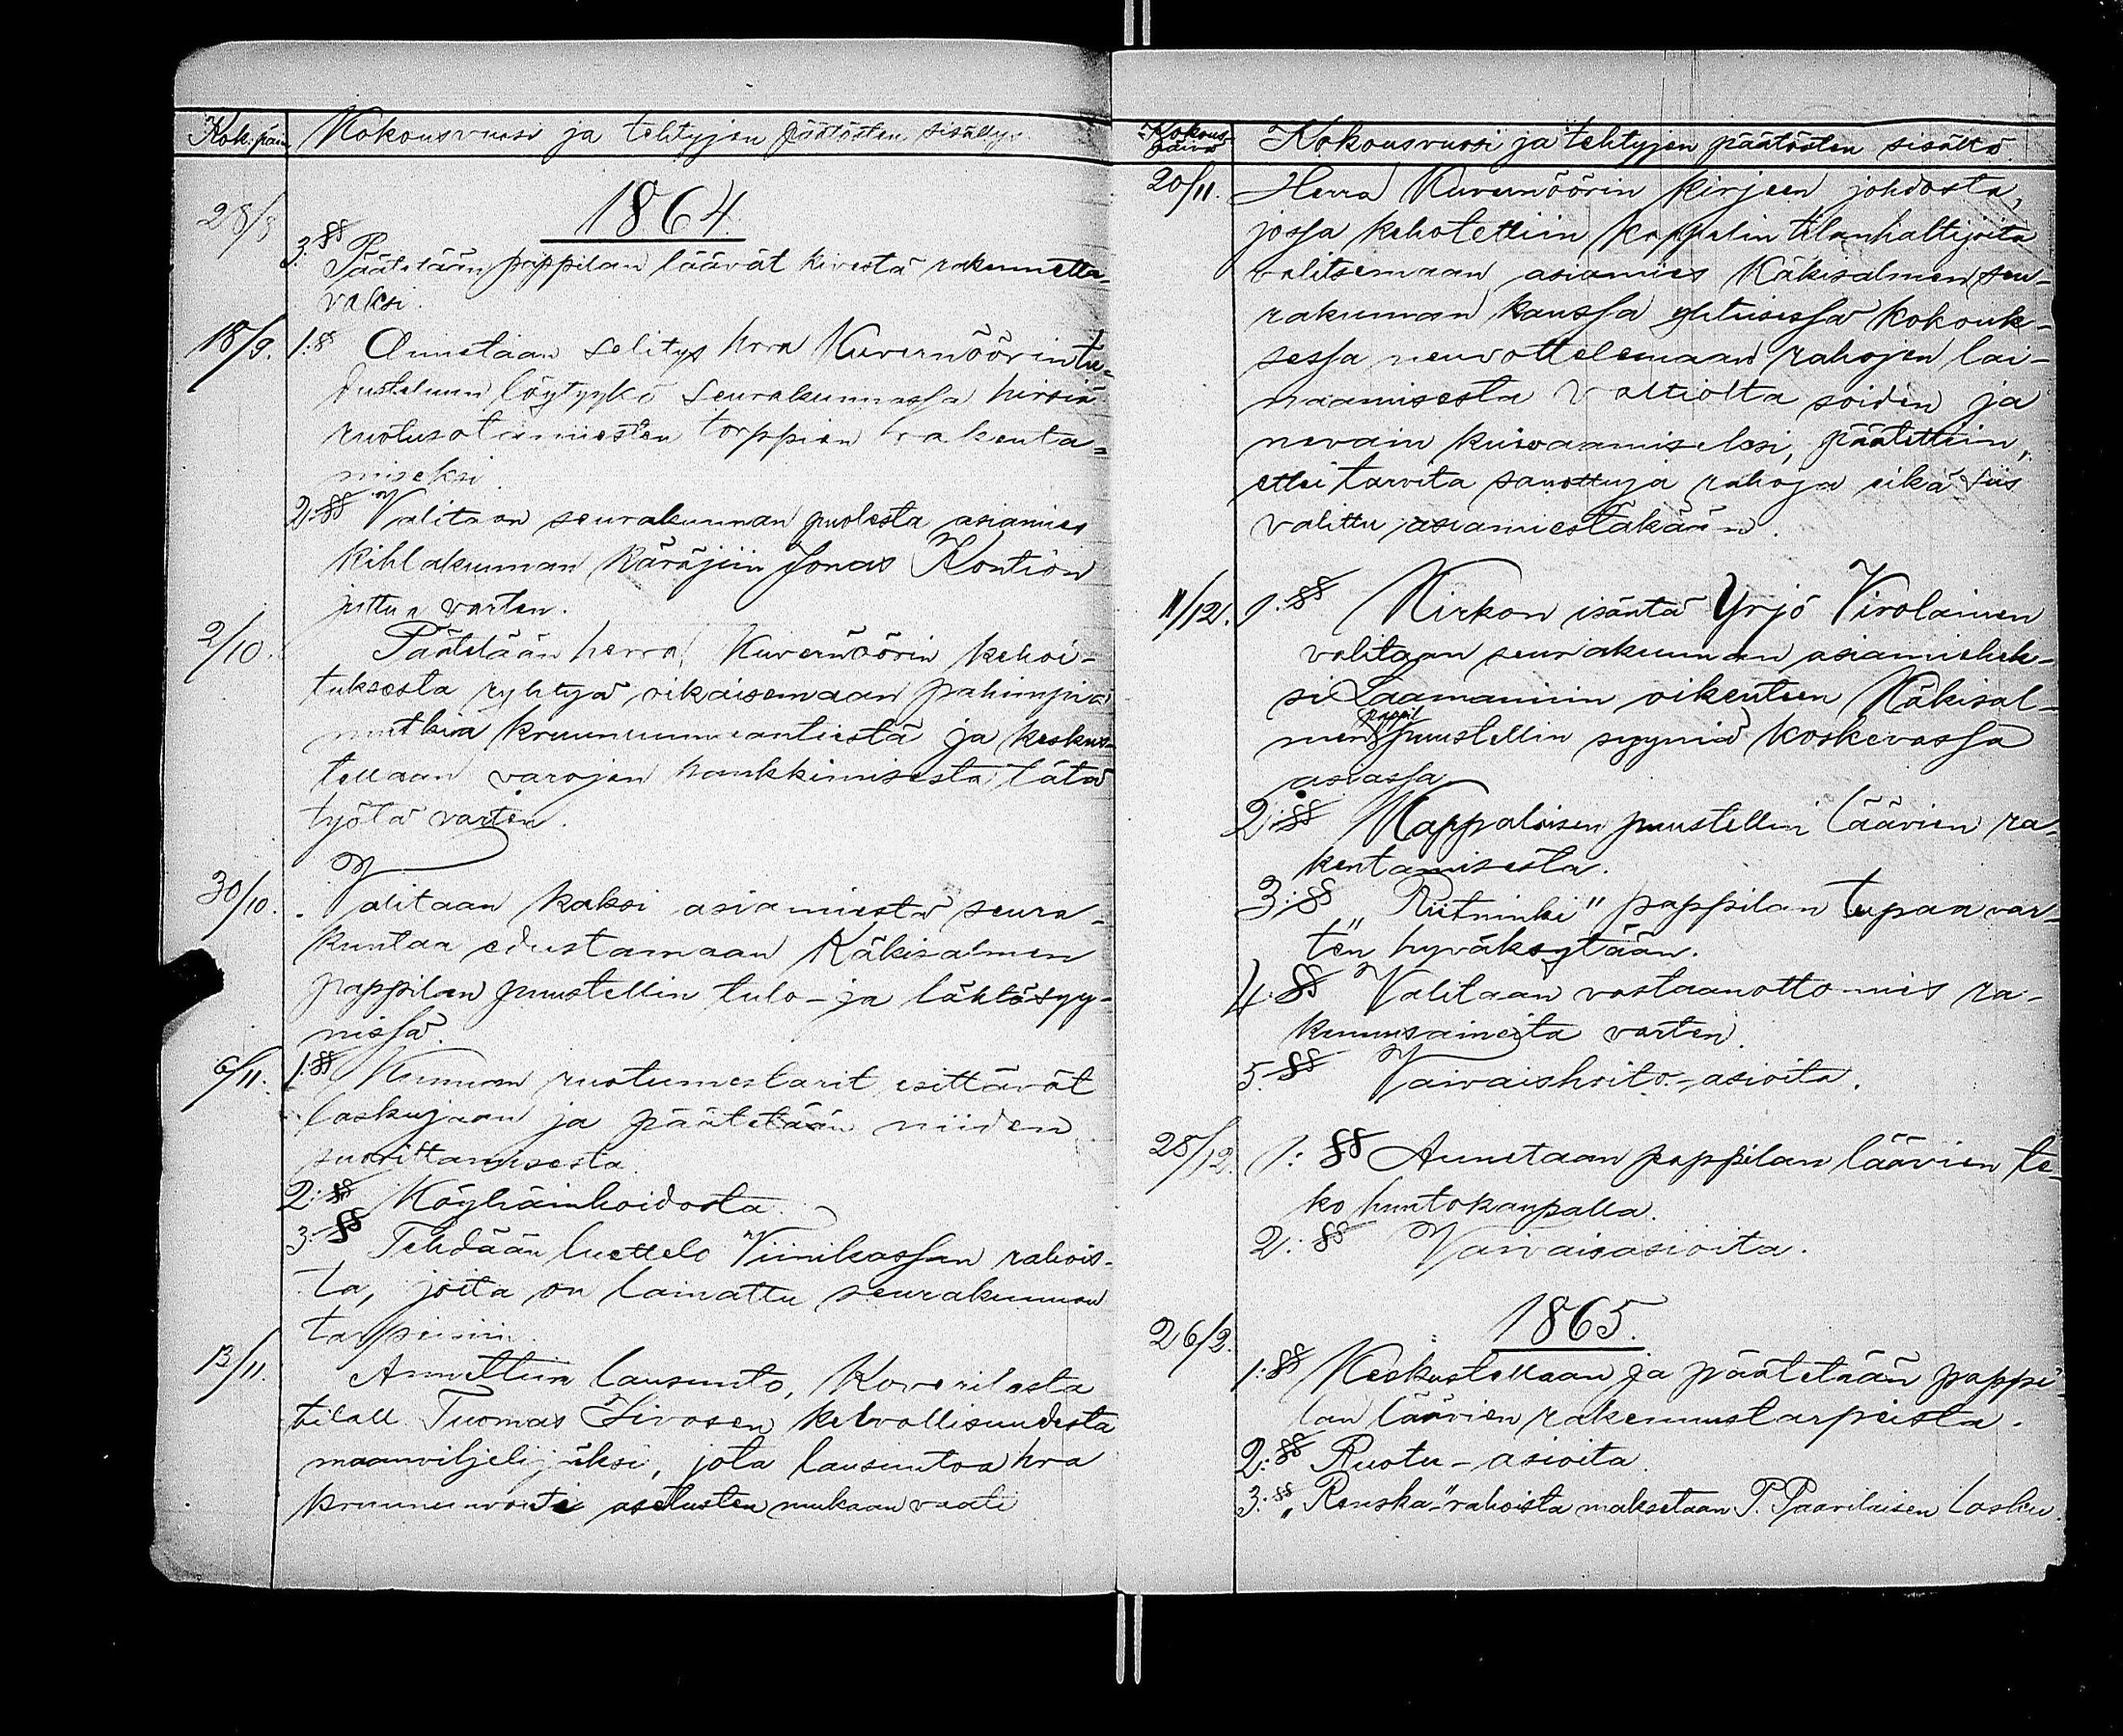 Kok. päiv. Kokousvuosi ja tehtyjen päätösten sisällys
1864.
28/8 3:§§ Päätetään pappilan läävät kivestä rakennetta-
vaksi.
18/9. 1:§ Annetaan selitys hrra Kuvernöörin tie-
dusteluun löytyykö seurakunnassa hirsiä
ruotusotamiesten torppien rakenta-
miseksi.
2:§§ Valitaan seurakunnan puolesta asiamies
kihlakunnan käräjiin Jonas Kontion
juttua varten.
2/10. Päätetään herra Kuvernöörin kehoi-
tuksesta ryhtyä oikaisemaan pahimpia
mutkia kruununmaantiestä ja keskus-
tellaan varojen hankkimisesta tätä
työtä varten.
30/10. Valitaan kaksi asiamiestä seura-
kuntaa edustamaan Käkisalmen
pappilan puustellin tulo- ja lähtösyy-
nissä.
6/11. 1:§§ Kunnan ruotumestarit esittävät
laskujaan ja päätetään niiden
suorittamisesta.
2:§§ Köyhäinhoidosta.
3:§§ Tehdään luettelo Viinikassan rahois-
ta, joita on lainattu seurakunnan
tarpeisiin.
13/11. Annettiin lausunto, Koverilasta
tilall. Tuomas Hivosen kelvollisuudesta
maanviljelijäksi, jota lausuntoa hra
kruununvouti asetusten mukaan vaati
Kokous-
päivä Kokousvuosi ja tehtyjen päätösten sisältö.
20/11. Herra Kuvernöörin kirjeen johdosta,
jossa kehotettiin kappelin tilanhaltijoita
valitsemaan asiamies Käkisalmen seu-
rakunnan kanssa yhteisessä kokouk-
sessa neuvottelemaan rahojen lai-
naamisesta valtiolta soiden ja
nevain kuivaamiseksi, päätettiin,
ettei tarvita sanottuja rahoja eikä siis
valittu asiamiestäkään.
11/12. 1:§§ Kirkon isäntä Yrjö Virolainen
valitaan seurakunnan asiamiehek-
si Laamannin oikeuteen Käkisal-
men pappil puustellin syyniä koskevassa
asiassa
2:§§ Kappalaisen puustellin läävien ra-
kentamisesta.
3:§§ "Riitninki" pappilan tupaa var-
ten hyväksytään.
4:§§ Valitaan vastaanottomies ra-
kennusaineita varten.
5:§§ Vaivaishoito-asioita.
28/12. 1:§§ Annetaan pappilan läävien te-
ko huutokaupalla.
2:§§ Vaivaisasioita.
1865.
26/2. 1:§§ Keskustellaan ja päätetään pappi-
lan läävien rakennustarpeista.
2:§§ Ruotu-asioita.
3:§§ "Renska-"rahoista maksetaan P. Paavilaisen lasku.